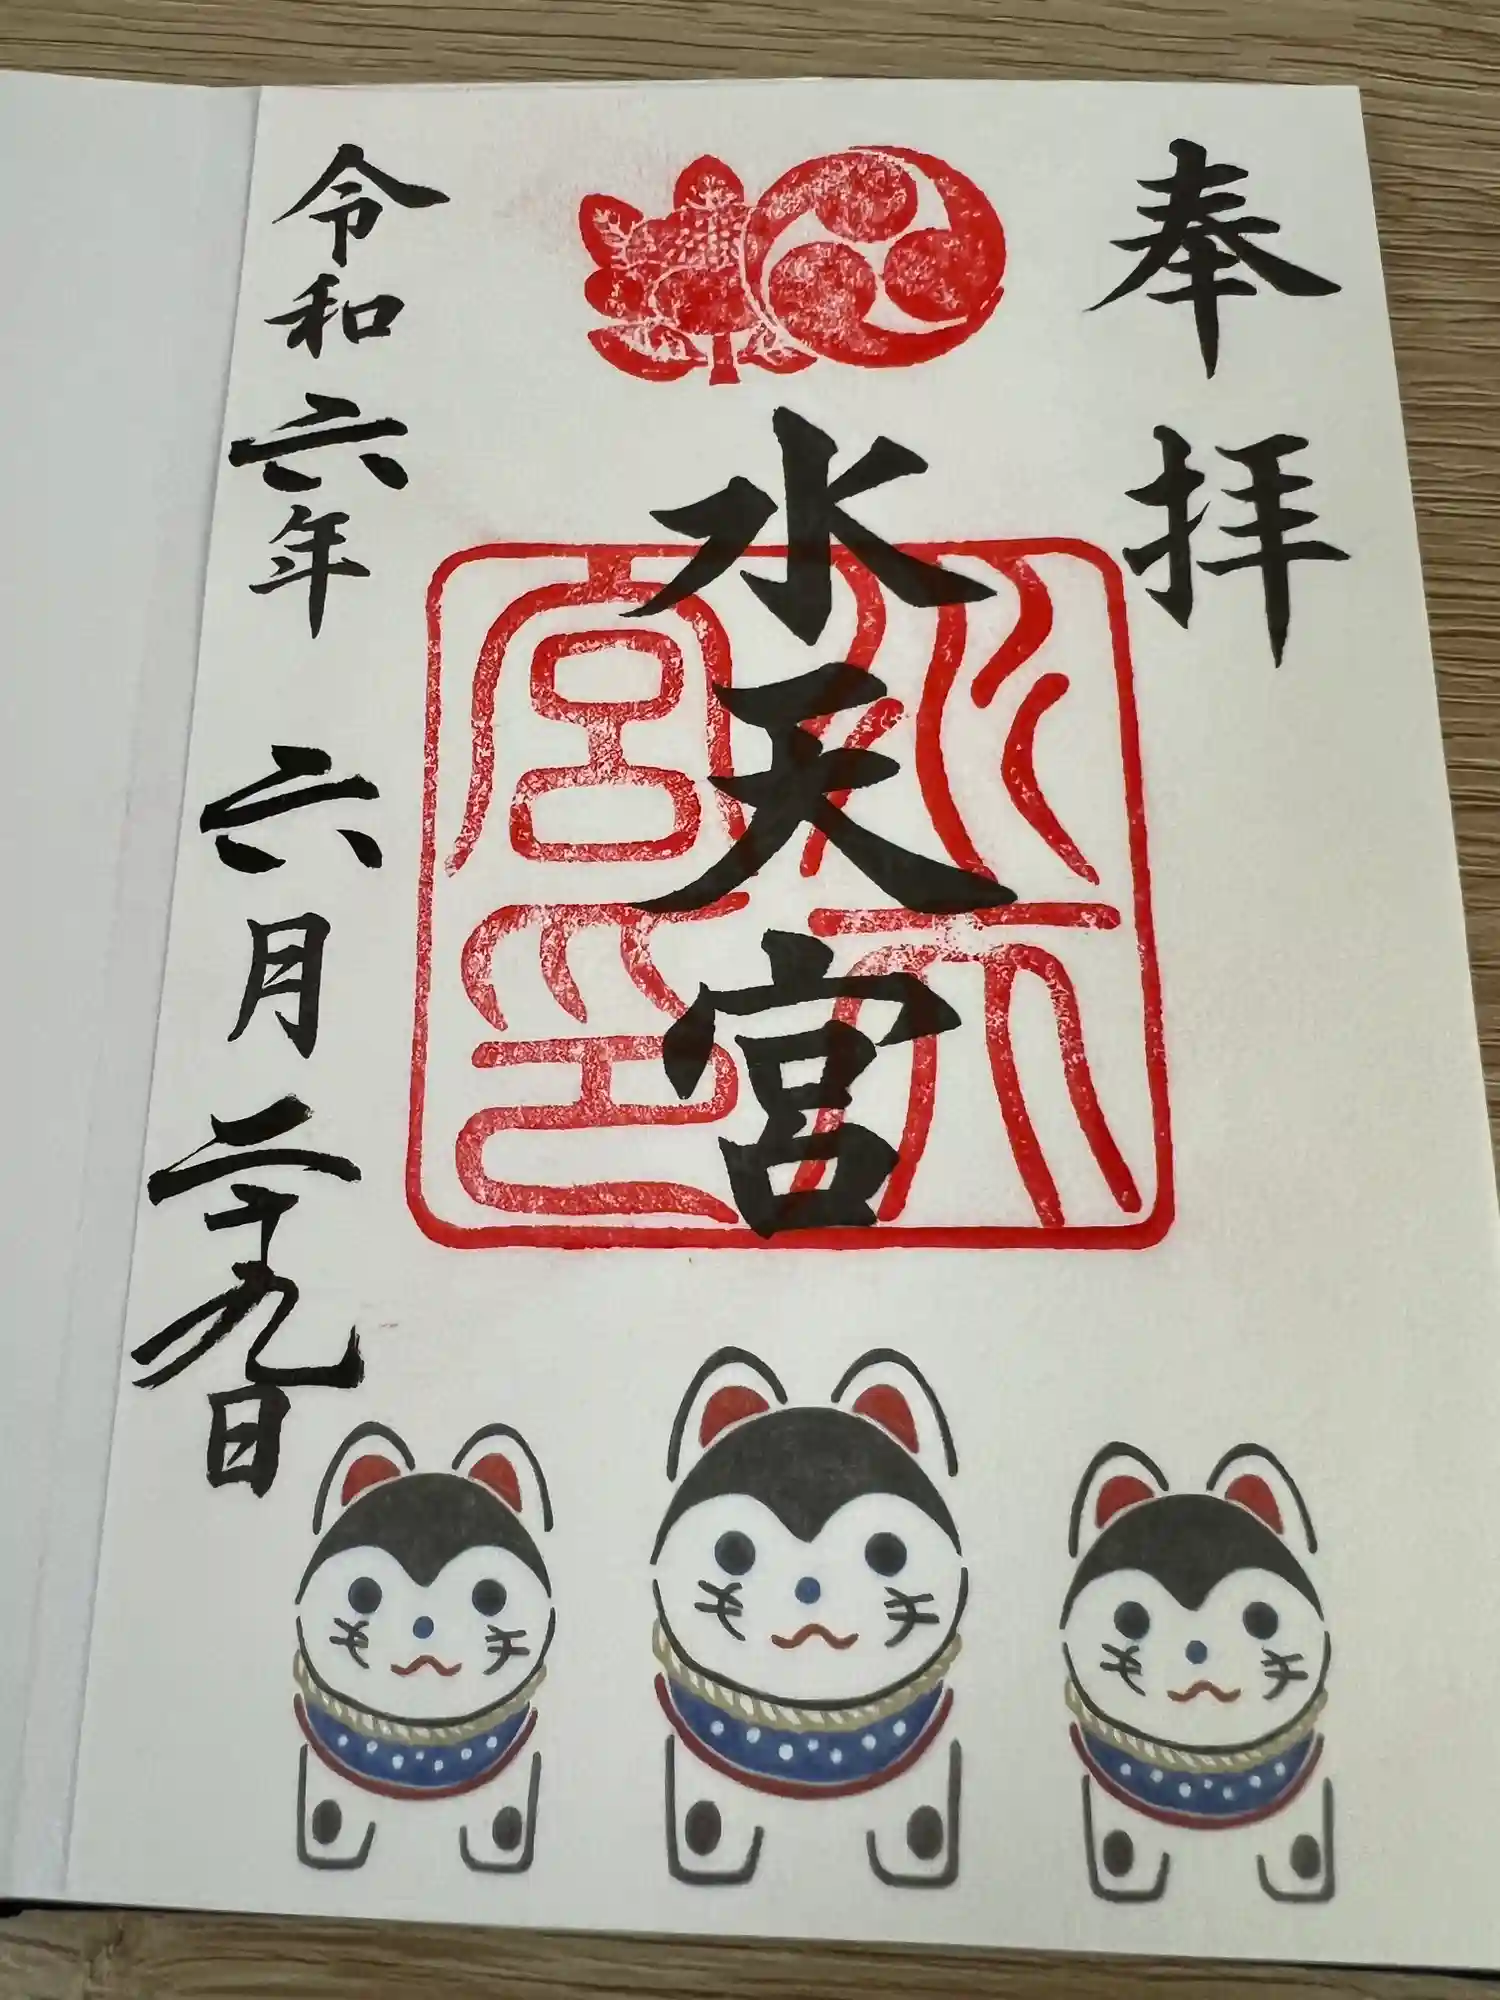 奉拝
水天宮
水天宮印
令和六年六月二十九日